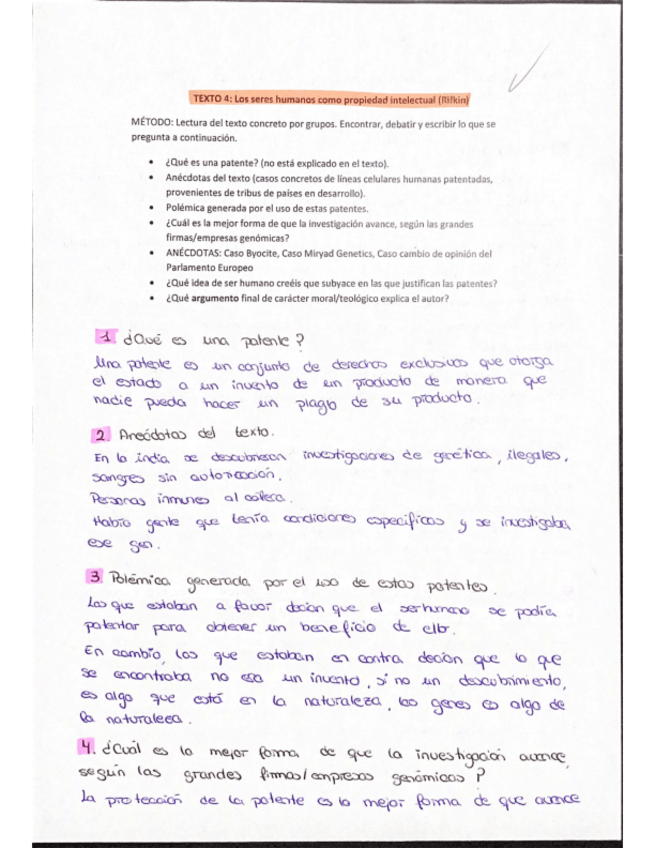 TEXTO 4: Los seres humanos como propiedad intelectual (Rifkin)
MÉTODO: Lectura del texto concreto por grupos. Encontrar, debatir y escribir lo que se
pregunta a continuación.
• ¿Qué es una patente? (no está explicado en el texto).
• Anécdotas del texto (casos concretos de líneas celulares humanas patentadas,
provenientes de tribus de países en desarrollo).
• Polémica generada por el uso de estas patentes.
• ¿Cuál es la mejor forma de que la investigación avance, según las grandes
firmas/empresas genómicas?
• ANÉCDOTAS: Caso Byocite, Caso Miryad Genetics, Caso cambio de opinión del
Parlamento Europeo
• ¿Qué idea de ser humano creéis que subyace en las que justifican las patentes?
• ¿Qué argumento final de carácter moral/teológico explica el autor?
1 ¿Qué es una patente?
Una patente es un conjunto de derechos exclusivos que otorga
el estado a un invento de un producto de manera que
nadie pueda hacer un plagio de su producto.
2. Anécdotas del texto.
En la india se descubrieron investigaciones de genética, ilegales,
sangres sin autorización.
Personas inmunes al cólera.
Había gente que tenía condiciones específicas y se investigaba
ese gen.
3 Polémica generada por el uso de estas patentes.
Los que estaban a favor decían que el ser humano se podía
patentar para obtener un beneficio de ello.
En cambio, los que estaban en contra decían que lo que
se encontraba no era un invento, si no un descubrimiento,
es algo que está en la naturaleza, los genes es algo de
la naturaleza.
4. ¿Cuál es la mejor forma de que la investigación avance,
según las grandes firmas/empresas genómicas?
La protección de la patente es la mejor forma de que avance